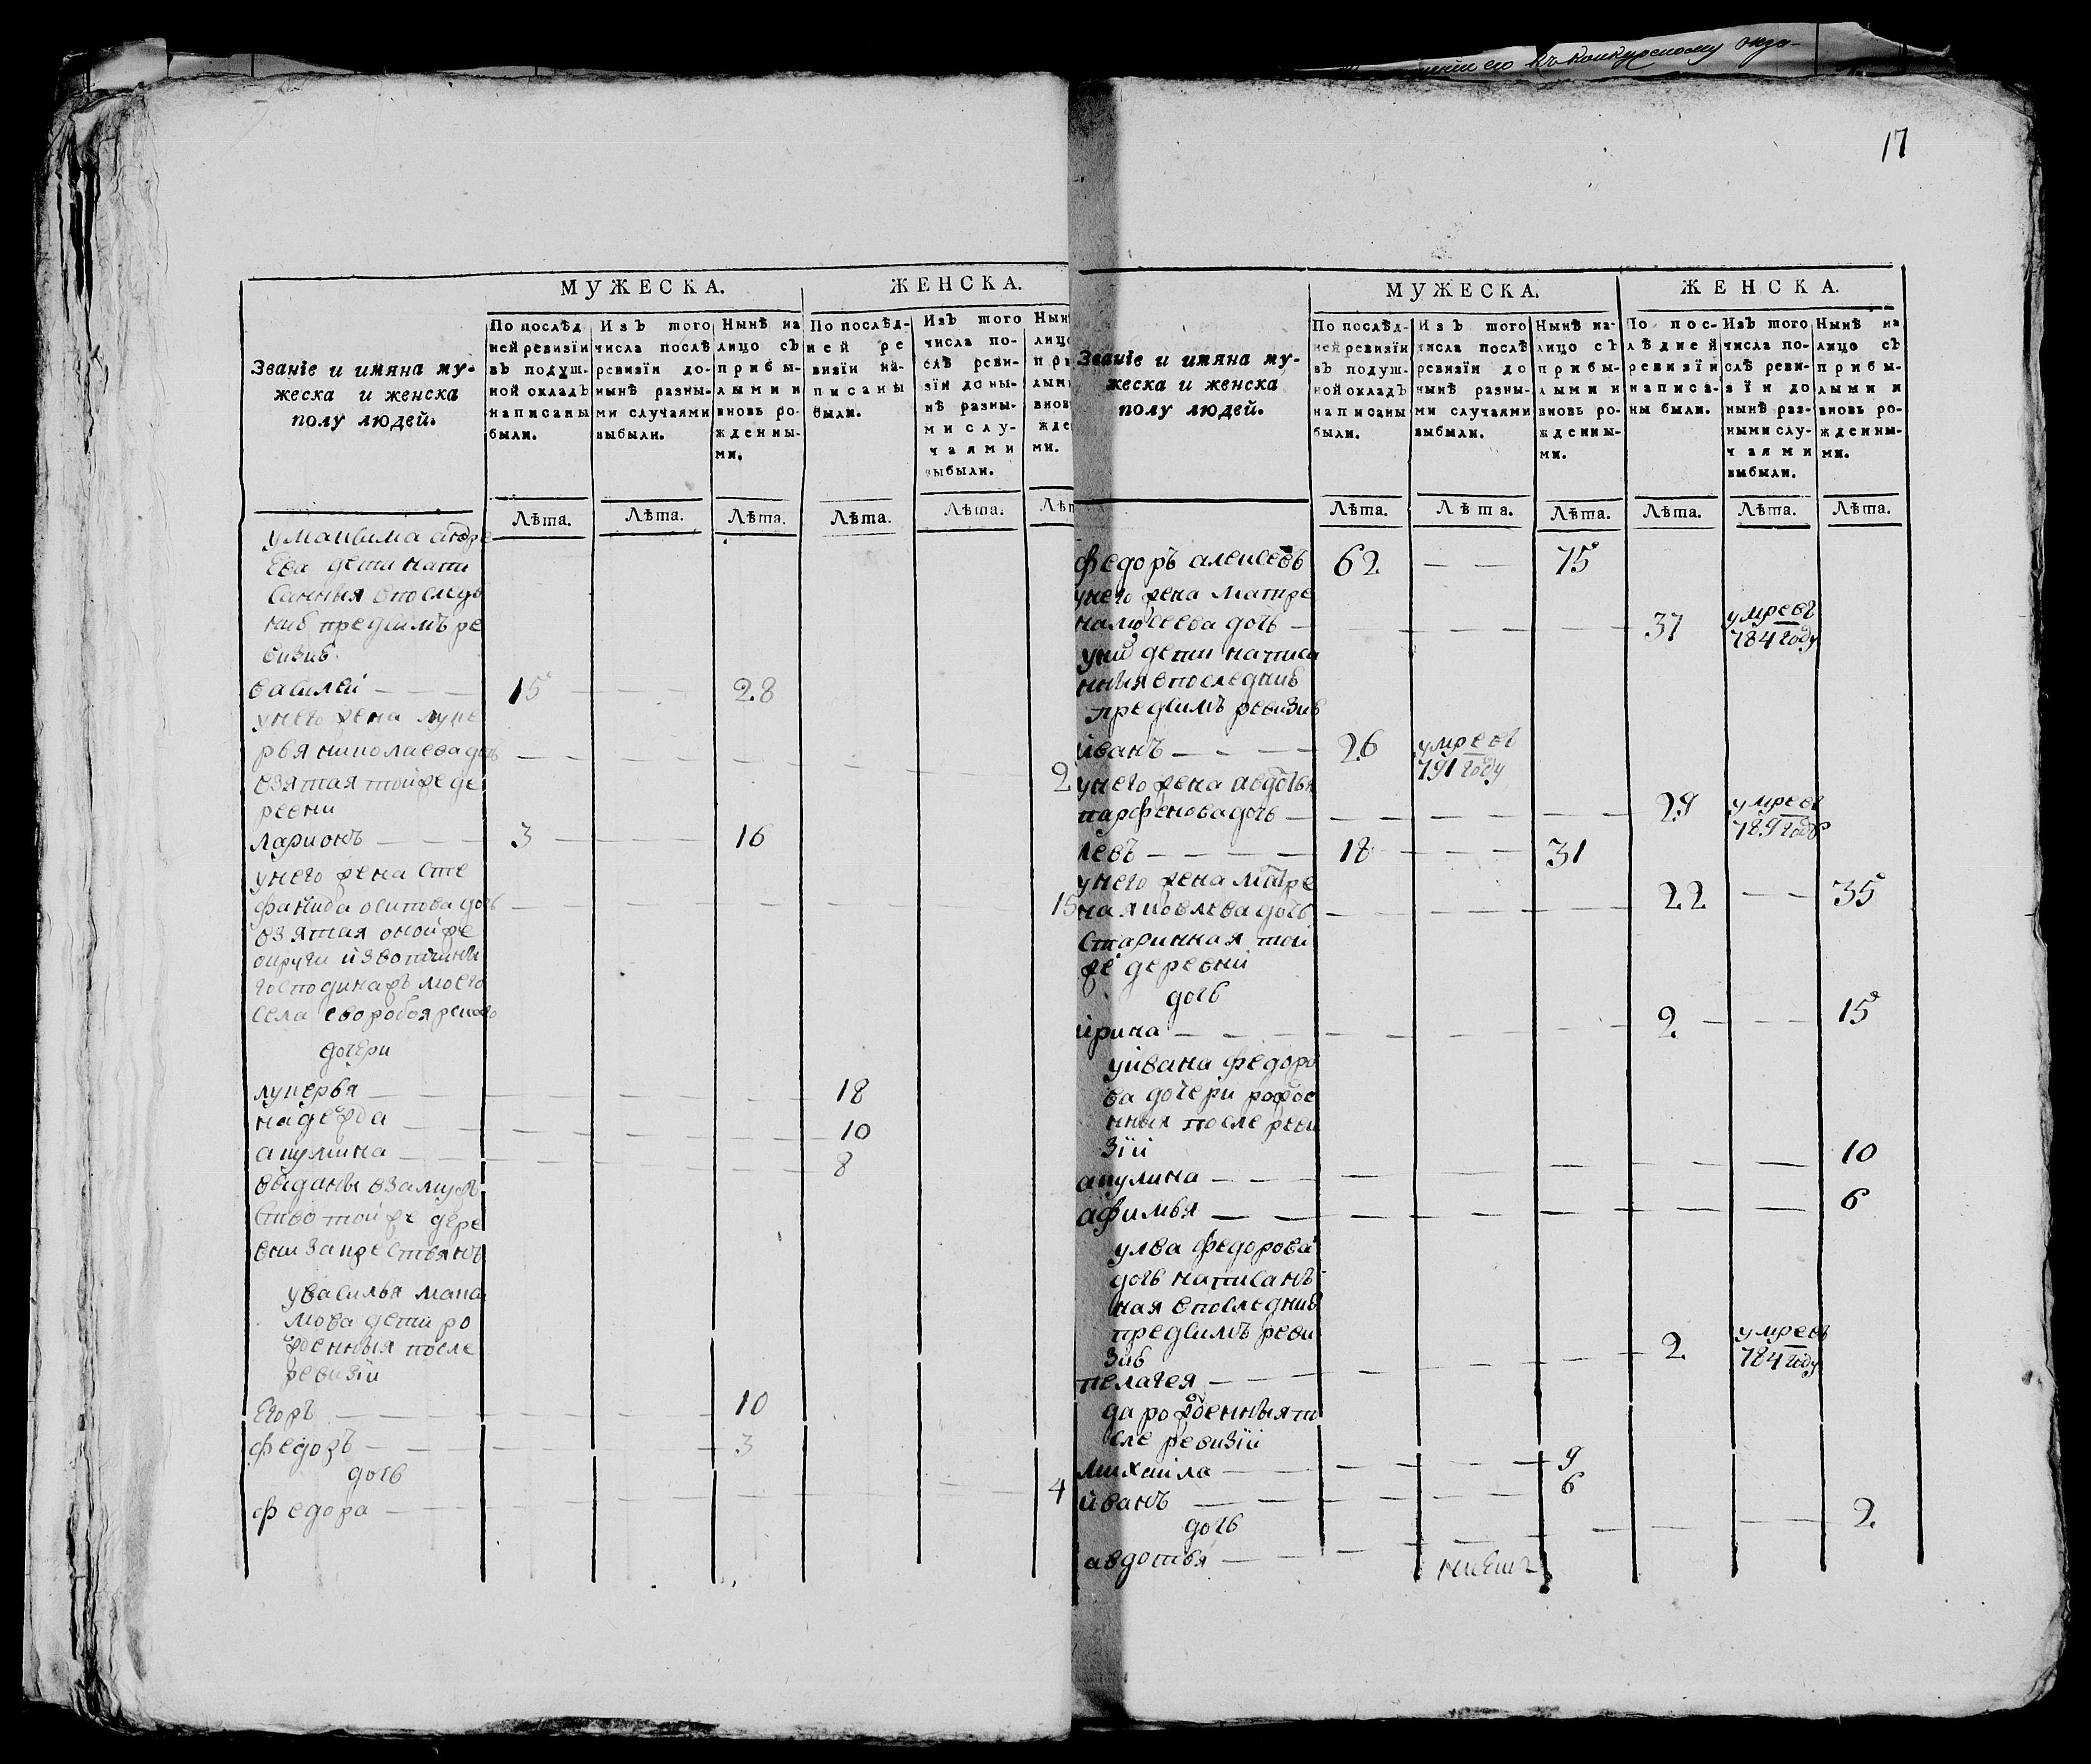 17
МУЖЕСКА. ЖЕНСКА.
Званїе и имяна му-
жеска и женска
полу людей.
По послѣд
ней ревизїи
въ подуш-
ной окладъ
написаны
были.
Изъ того
числа послѣ
ревизїи до-
нынѣ разны-
ми случаями
выбыли.
Нынѣ на
лицо съ
прибы-
лыми и
вновь ро-
жденны-
ми.
По послѣд-
ней ре
визїи на-
писаны
были.
Изъ того
числа по-
слѣ реви-
зїи до ны-
нѣ разны-
ми слу-
чаями
выбыли.
Лѣта. Лѣта. Лѣта. Лѣта. Лѣта.
умаѯима андре
ева дети напи
санныя впослед
неѣ предсимъ ре
визиѣ
василей — — — 15 — — — 28
унего жена луке
рья николаева дочь
взятая тойже де
ревни
ларионъ — — — 3 — — — 16
унего жена сте
фанида осипова дочь — — — 15
взятая оной же
округи извотчины
господинажъ моего
села
дочери
лукерья — — — 18
надежда — — — 10
акулина — — — 8
выданы взамуж
ство тойже дере
вни закрестьянъ
увасилья макси
мова дети ро
жденныя после
ревизїи
Егоръ — — — 10
федоръ — — — 3
дочь
федора — — — 4
МУЖЕСКА. ЖЕНСКА.
Званїе и имяна му-
жеска и женска
полу людей.
По послѣд-
ней ревизїи
въ подуш-
ной окладъ
написаны
были.
Изъ того
числа послѣ
ревизїи до
нынѣ разны-
ми случаями
выбыли.
Нынѣ на-
лицо съ
прибы-
лыми и
вновь ро-
жденны-
ми.
По пос-
лѣдней
ревизїи
написа-
ны были.
Изъ того
числа по-
слѣ реви-
зїи до
нынѣ раз-
ными слу-
чаями
выбыли.
Нынѣ на
лицо съ
прибы-
лыми и
вновь ро-
жденны-
ми.
Лѣта. Лѣта. Лѣта. Лѣта. Лѣта. Лѣта.
федоръ алексеевъ 62 — — 75
унего жена матре
на дочь — — — 37 умре въ 784 году
уних дети написа
нныя впоследниѣ
предсимъ ревизиѣ
иванъ — — — 26 умре въ 791 году
унего жена авдотья
парфенова дочь — — — 29 умре въ 789 годѣ
левъ — — — 18 — — — 31
унего жена матре
на яковлева дочь — — — 22 — — 35
старинная той
же деревни
дочь
ирина — — — 2 — — 15
уивана федоро
ва дочери рожде
нныя после реви
зїи
акулина — — — 10
афимья — — — 6
улва федорова
дочь написанъ
ная впоследниѣ
предсимъ реви
зиѣ
пелагея — — — 2 умре въ 784 году
да рожденныя по
сле ревизїи
михаила — — — 9
иванъ — — — 6
дочь
авдотья — — — 2